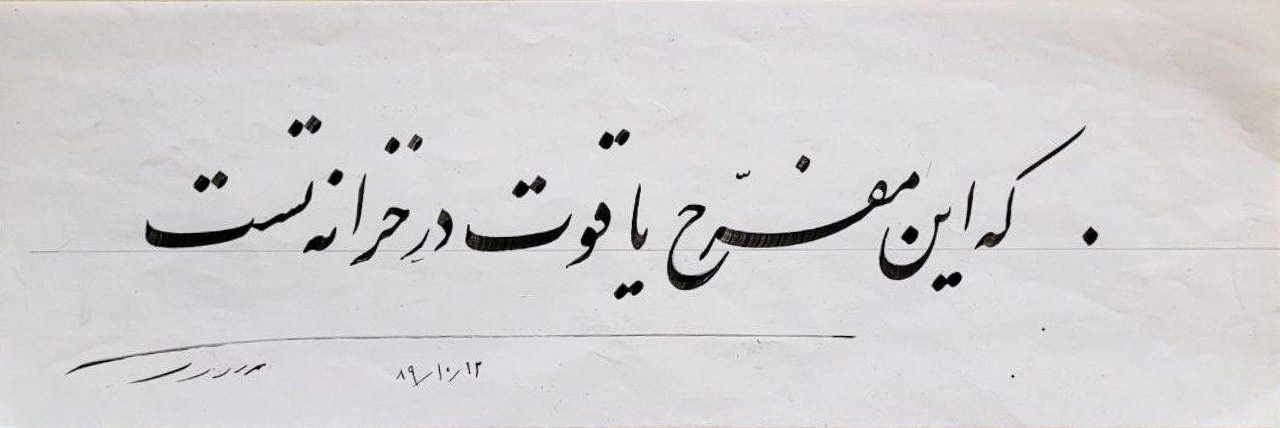 که این مفرّح یاقوت در خزانه تست
۸۹/۱۰/۱۲